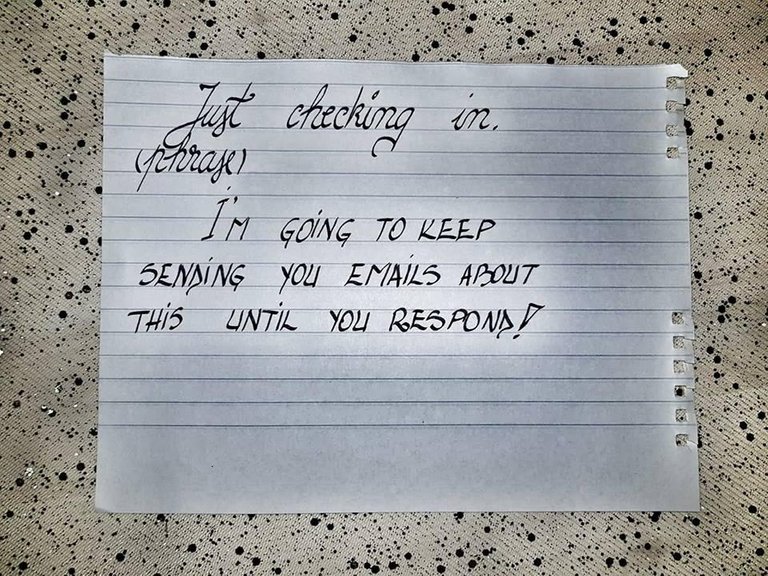 Just checking in.
(phrase)
I'M GOING TO KEEP
SENDING YOU EMAILS ABOUT
THIS UNTIL YOU RESPOND!